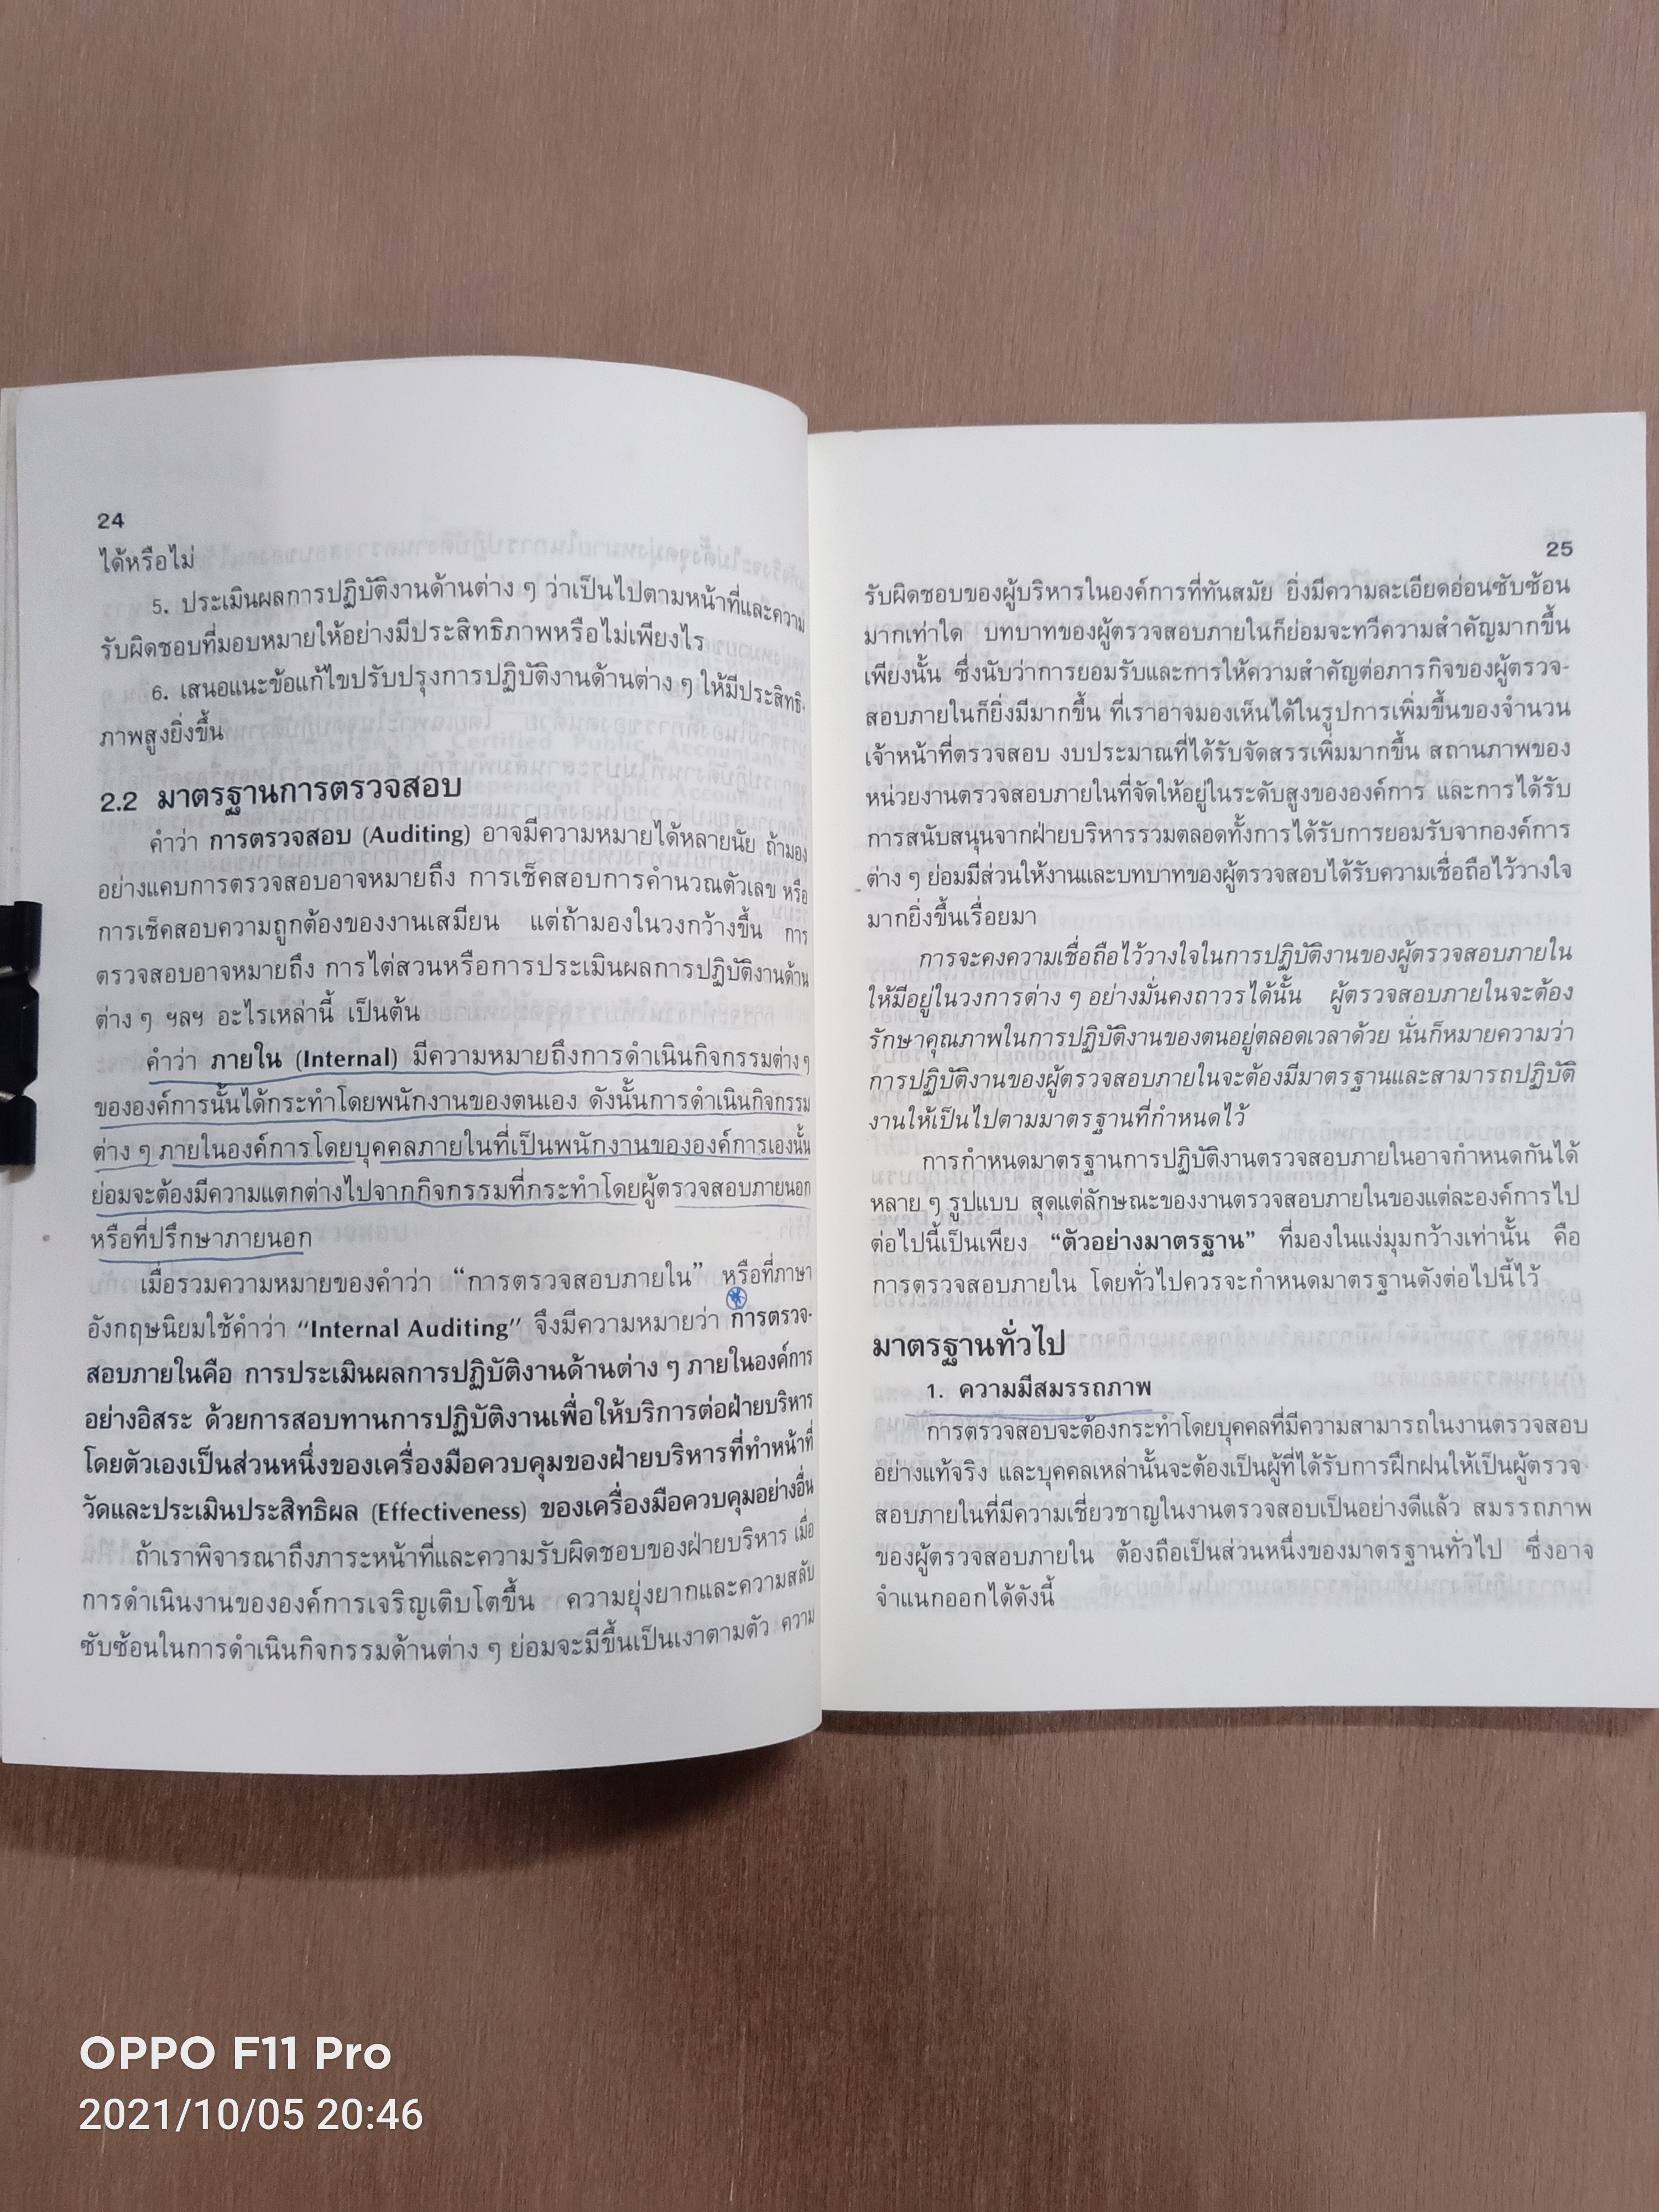 24
ได้หรือไม่
5. ประเมินผลการปฏิบัติงานด้านต่าง ๆ ว่าเป็นไปตามหน้าที่และความ
รับผิดชอบที่มอบหมายให้อย่างมีประสิทธิภาพหรือไม่เพียงไร
6. เสนอแนะข้อแก้ไขปรับปรุงการปฏิบัติงานด้านต่าง ๆ ให้มีประสิทธิ-
ภาพสูงยิ่งขึ้น
2.2 มาตรฐานการตรวจสอบ
คำว่า การตรวจสอบ (Auditing) อาจมีความหมายได้หลายนัย ถ้ามอง
อย่างแคบการตรวจสอบอาจหมายถึง การเช็คสอบการคำนวณตัวเลข หรือ
การเช็คสอบความถูกต้องของงานเสมียน แต่ถ้ามองในวงกว้างขึ้น การ
ตรวจสอบอาจหมายถึง การไต่สวนหรือการประเมินผลการปฏิบัติงานด้าน
ต่าง ๆ ฯลฯ อะไรเหล่านี้ เป็นต้น
คำว่า ภายใน (Internal) มีความหมายถึงการดำเนินกิจกรรมต่าง ๆ
ขององค์การนั้นได้กระทำโดยพนักงานของตนเอง ดังนั้นการดำเนินกิจกรรม
ต่าง ๆ ภายในองค์การโดยบุคคลภายในที่เป็นพนักงานขององค์การเองนั้น
ย่อมจะต้องมีความแตกต่างไปจากกิจกรรมที่กระทำโดยผู้ตรวจสอบภายนอก
หรือที่ปรึกษาภายนอก
เมื่อรวมความหมายของคำว่า “การตรวจสอบภายใน” หรือที่ภาษา
อังกฤษนิยมใช้คำว่า “Internal Auditing” จึงมีความหมายว่า การตรวจ-
สอบภายในคือ การประเมินผลการปฏิบัติงานด้านต่าง ๆ ภายในองค์การ
อย่างอิสระ ด้วยการสอบทานการปฏิบัติงานเพื่อให้บริการต่อฝ่ายบริหาร
โดยตัวเองเป็นส่วนหนึ่งของเครื่องมือควบคุมของฝ่ายบริหารที่ทำหน้าที่
วัดและประเมินประสิทธิผล (Effectiveness) ของเครื่องมือควบคุมอย่างอื่น
ถ้าเราพิจารณาถึงภาระหน้าที่และความรับผิดชอบของฝ่ายบริหาร เมื่อ
การดำเนินงานขององค์การเจริญเติบโตขึ้น ความยุ่งยากและความสลับ
ซับซ้อนในการดำเนินกิจกรรมด้านต่าง ๆ ย่อมจะมีขึ้นเป็นเงาตามตัว ความ
25
รับผิดชอบของผู้บริหารในองค์การที่ทันสมัย ยิ่งมีความละเอียดอ่อนซับซ้อน
มากเท่าใด บทบาทของผู้ตรวจสอบภายในก็ย่อมจะทวีความสำคัญมากขึ้น
เพียงนั้น ซึ่งนับว่าการยอมรับและการให้ความสำคัญต่อภารกิจของผู้ตรวจ-
สอบภายในก็ยิ่งมีมากขึ้น ที่เราอาจมองเห็นได้ในรูปการเพิ่มขึ้นของจำนวน
เจ้าหน้าที่ตรวจสอบ งบประมาณที่ได้รับจัดสรรเพิ่มมากขึ้น สถานภาพของ
หน่วยงานตรวจสอบภายในที่จัดให้อยู่ในระดับสูงขององค์การ และการได้รับ
การสนับสนุนจากฝ่ายบริหารรวมตลอดทั้งการได้รับการยอมรับจากองค์การ
ต่าง ๆ ย่อมมีส่วนให้งานและบทบาทของผู้ตรวจสอบได้รับความเชื่อถือไว้วางใจ
มากยิ่งขึ้นเรื่อยมา
การจะคงความเชื่อถือไว้วางใจในการปฏิบัติงานของผู้ตรวจสอบภายใน
ให้มีอยู่ในวงการต่าง ๆ อย่างมั่นคงถาวรได้นั้น ผู้ตรวจสอบภายในจะต้อง
รักษาคุณภาพในการปฏิบัติงานของตนอยู่ตลอดเวลาด้วย นั่นก็หมายความว่า
การปฏิบัติงานของผู้ตรวจสอบภายในจะต้องมีมาตรฐานและสามารถปฏิบัติ
งานให้เป็นไปตามมาตรฐานที่กำหนดไว้
การกำหนดมาตรฐานการปฏิบัติงานตรวจสอบภายในอาจกำหนดกันได้
หลาย ๆ รูปแบบ สุดแต่ลักษณะของงานตรวจสอบภายในของแต่ละองค์การไป
ต่อไปนี้เป็นเพียง “ตัวอย่างมาตรฐาน” ที่มองในแง่มุมกว้างเท่านั้น คือ
การตรวจสอบภายใน โดยทั่วไปควรจะกำหนดมาตรฐานดังต่อไปนี้ไว้
มาตรฐานทั่วไป
1. ความมีสมรรถภาพ
การตรวจสอบจะต้องกระทำโดยบุคคลที่มีความสามารถในงานตรวจสอบ
อย่างแท้จริง และบุคคลเหล่านั้นจะต้องเป็นผู้ที่ได้รับการฝึกฝนให้เป็นผู้ตรวจ-
สอบภายในที่มีความเชี่ยวชาญในงานตรวจสอบเป็นอย่างดีแล้ว สมรรถภาพ
ของผู้ตรวจสอบภายใน ต้องถือเป็นส่วนหนึ่งของมาตรฐานทั่วไป ซึ่งอาจ
จำแนกออกได้ดังนี้
OPPO F11 Pro
2021/10/05 20:46